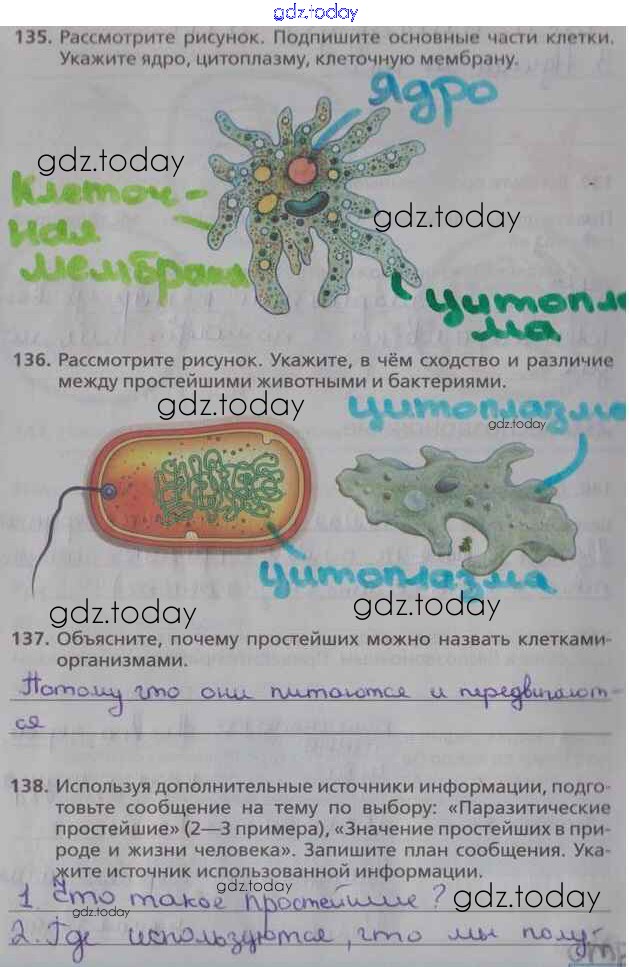 gdz.today
135. Рассмотрите рисунок. Подпишите основные части клетки.
Укажите ядро, цитоплазму, клеточную мембрану.
Ядро
gdz.today
Клеточ-
ная
мембрана
gdz.today
цитопла
ма
136. Рассмотрите рисунок. Укажите, в чём сходство и различие
между простейшими животными и бактериями.
gdz.today
цитоплазма
gdz.today
цитоплазма
gdz.today
gdz.today
137. Объясните, почему простейших можно назвать клетками-
организмами.
Потому что они питаются и передвигают-
ся
138. Используя дополнительные источники информации, подго-
товьте сообщение на тему по выбору: «Паразитические
простейшие» (2—3 примера), «Значение простейших в при-
роде и жизни человека». Запишите план сообщения. Ука-
жите источник использованной информации.
gdz.today
1. Что такое простейшие?
gdz.today
gdz.today
2. Где используются, что мы полу-